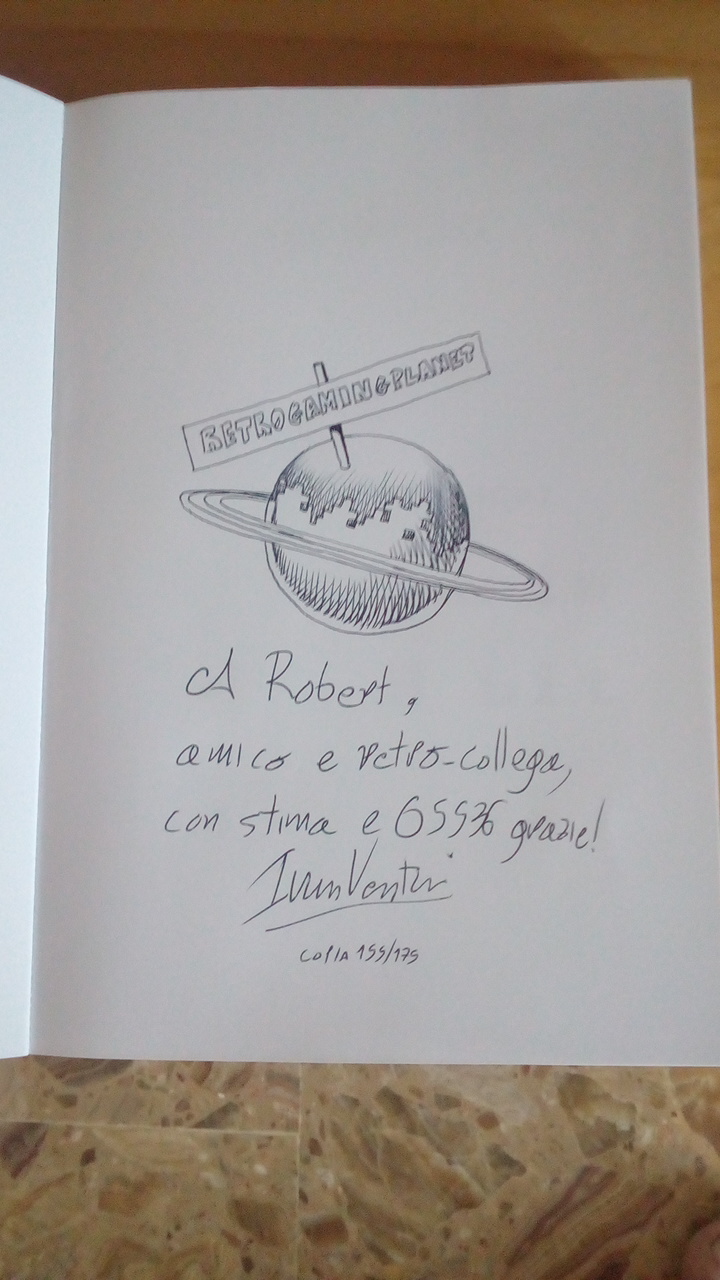 RETROGAMING PLANET
A Robert,
amico e retro-collega,
con stima e 65536 grazie!
Ivan Venturi
COPIA 155/175